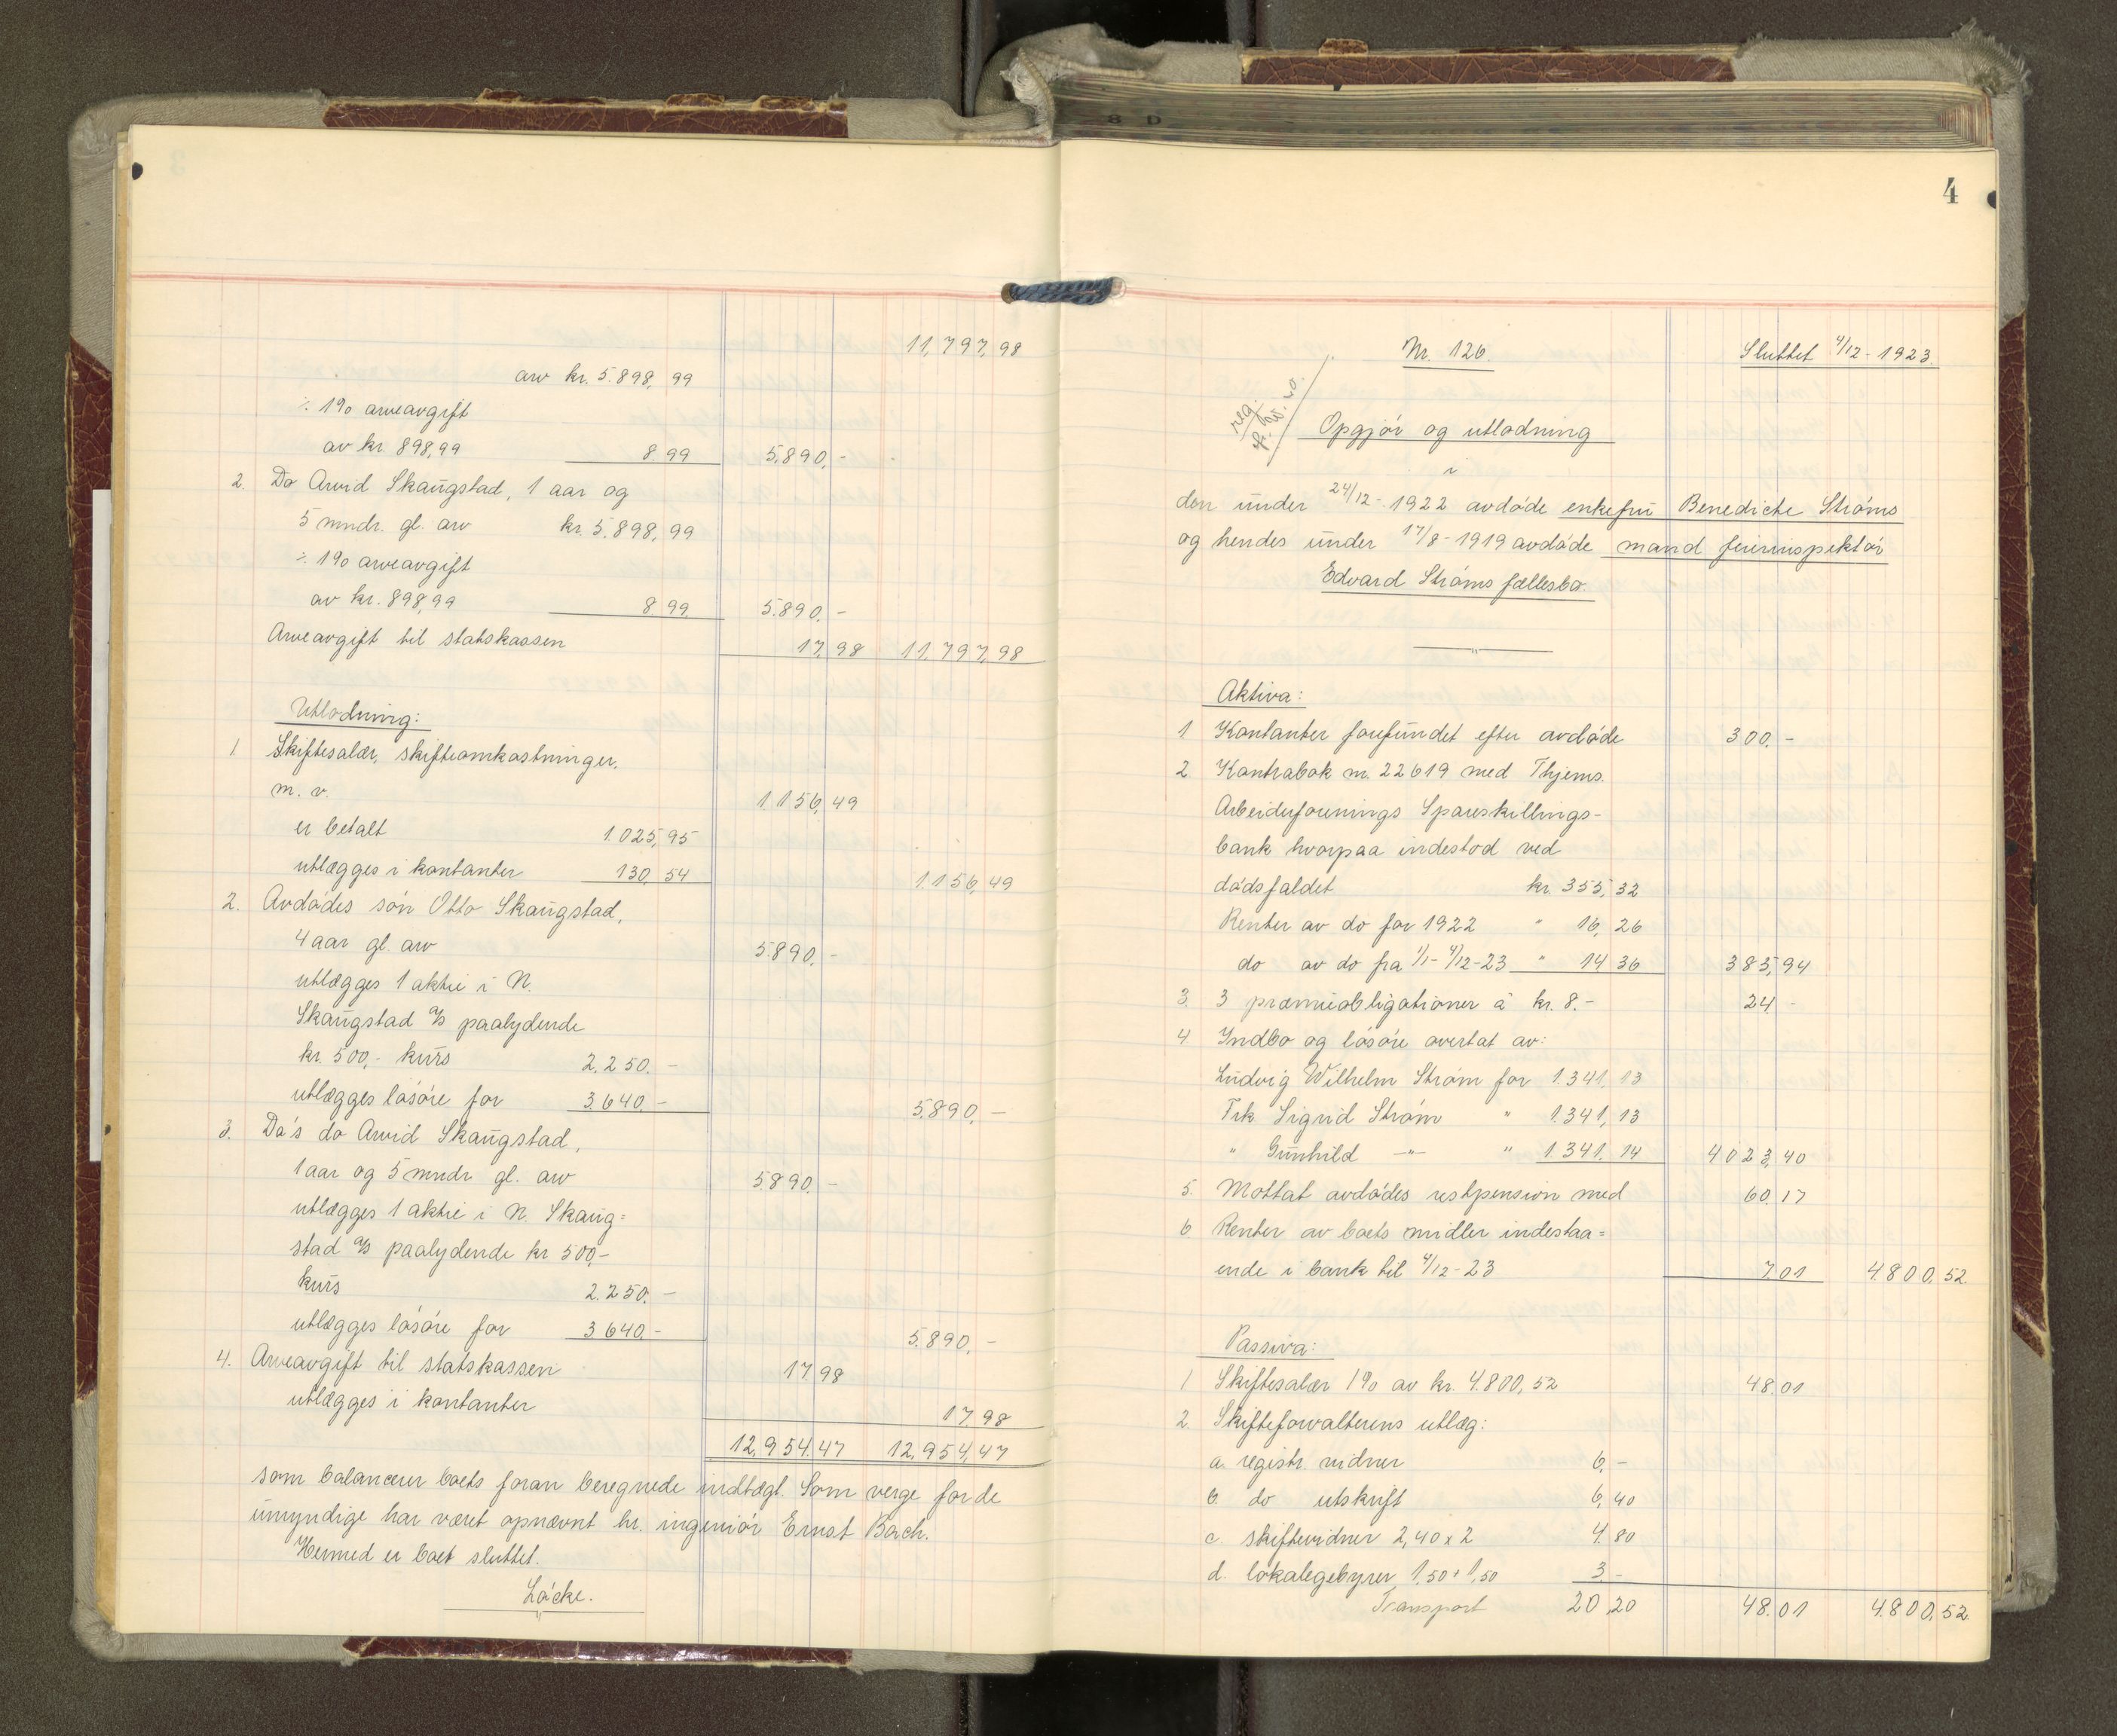 11,797,98
arv kr. 5.898,99
÷ 1% arveavgift
av kr. 898,99 8.99 5,890,-
2. Do Arvid Skaugstad, 1 aar og
5 mndr. gl. arv kr. 5.898,99
÷ 1% arveavgift
av kr. 898,99 8.99 5.890.-
Arveavgift til statskassen 17,98 11,797,98
Utlodning:
1 Skiftesalær, skifteomkostninger,
m. v. 1.156,49
er betalt 1.025,95
utlægges i kontanter 130,54 1.156,49
2. Avdødes søn Otto Skaugstad,
4 aar gl. arv 5.890.-
utlægges 1 aktie i N.
Skaugstad A/S paalydende
kr. 500,- kurs 2.250.-
utlægges løsøre for 3.640.- 5.890,-
3. Do's do Arvid Skaugstad,
1 aar og 5 mndr gl. arv 5890.-
utlægges 1 aktie i N. Skaug=
stad A/S paalydende kr 500,-
kurs 2.250.-
utlægges løsøre for 3640.- 5.890,-
4. Arveavgift til statskassen 17,98
utlægges i kontanter 17,98
12.954.47 12.954,47
som balancerer boets foran beregnede indtægt. Som verge for de
umyndige har været opnævnt hr. ingeniør Ernst Bach.
Hermed er boet sluttet.
Löcke.
4
Nr. 126. Sluttet 4/12-1923.
reg.
Opgjør og utlodning
i
den under 24/12-1922 avdøde enkefru Benedicte Strøms
og hendes under 17/8-1919 avdøde mand fyrinspektør
Edvard Strøms fællesbo.
Aktiva:
1 Kontanter forefundet efter avdøde 300.-
2 Kontrabok nr. 22619 med Thjems.
Arbeiderforenings Spareskillings-
bank hvorpaa indestod ved
dødsfaldet kr. 355,32
Renter av do for 1922 " 16,26
do av do fra 1/1-4/12-23 " 14 36 385,94
3. 3 præmieobligationer á kr. 8.- 24.-
4 Indbo og løsøre overtat av:
Ludvig Wilhelm Strøm for 1.341,13
Frk Sigrid Strøm " 1.341,13
" Gunhild -"- " 1.341.14 4023,40
5. Mottat avdødes restpension med 60.17
6 Renter av boets midler indestaa=
ende i bank til 4/12-23 7.01 4.800,52.
Passiva:
1 Skiftesalær 1% av kr. 4.800,52 48.01
2. Skifteforvalterens utlæg:
a. registr. vidner 6,-
b. do utskrift 6,40
c. skiftevidner 2,40 x 2 4.80
d. lokalegebyrer 1,50 + 1,50 3.-
Transport 20,20 48.01 4.800,52.